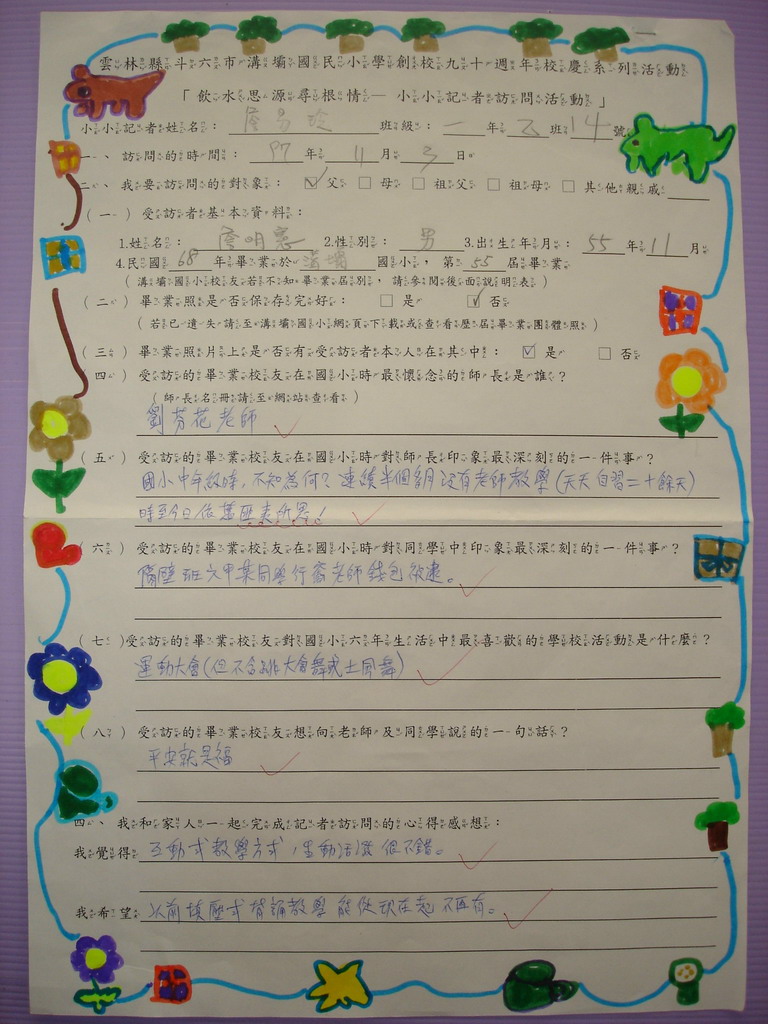 雲林縣斗六市溝壩國民小學創校九十週年校慶系列活動
「飲水思源尋根情—小小記者訪問活動」
小小記者姓名： 詹易 班級：一年乙班14號
一、訪問的時間：97年11月3日
二、我要訪問的對象：☑父 □母 □祖父 □祖母 □其他親戚
（一）受訪者基本資料：
1.姓名：詹明憲 2.性別：男 3.出生年月：55年11月
4.民國68年畢業於溝壩國小，第55屆畢業
（溝壩國小校友若不知畢業屆別，請參閱後面說明表）
（二）畢業照是否保存完好：□是 ☑否
（若已遺失請至溝壩國小網頁下載或查看歷屆畢業團體照）
（三）畢業照片上是否有受訪者本人在其中：☑是 □否
（四）受訪的畢業校友在國小時最懷念的師長是誰？
（師長名冊請至網站查看）
劉芬花老師
（五）受訪的畢業校友在國小時對師長印象最深刻的一件事？
國小中年級時，不知為何？連續半個多月沒有老師教學(天天自習二十餘天)
時至今日依舊匪夷所思！
（六）受訪的畢業校友在國小時對同學中印象最深刻的一件事？
隔壁班六甲某同學行竊老師錢包被逮。
（七）受訪的畢業校友對國小六年生活中最喜歡的學校活動是什麼？
運動大會(但不含跳大會舞或土風舞)
（八）受訪的畢業校友想向老師及同學說的一句話？
平安就是福
四、我和家人一起完成記者訪問的心得感想：
我覺得 互動式教學方式，生動活潑很不錯。
我希望 以前填壓式背誦教學能從現在起不再有。